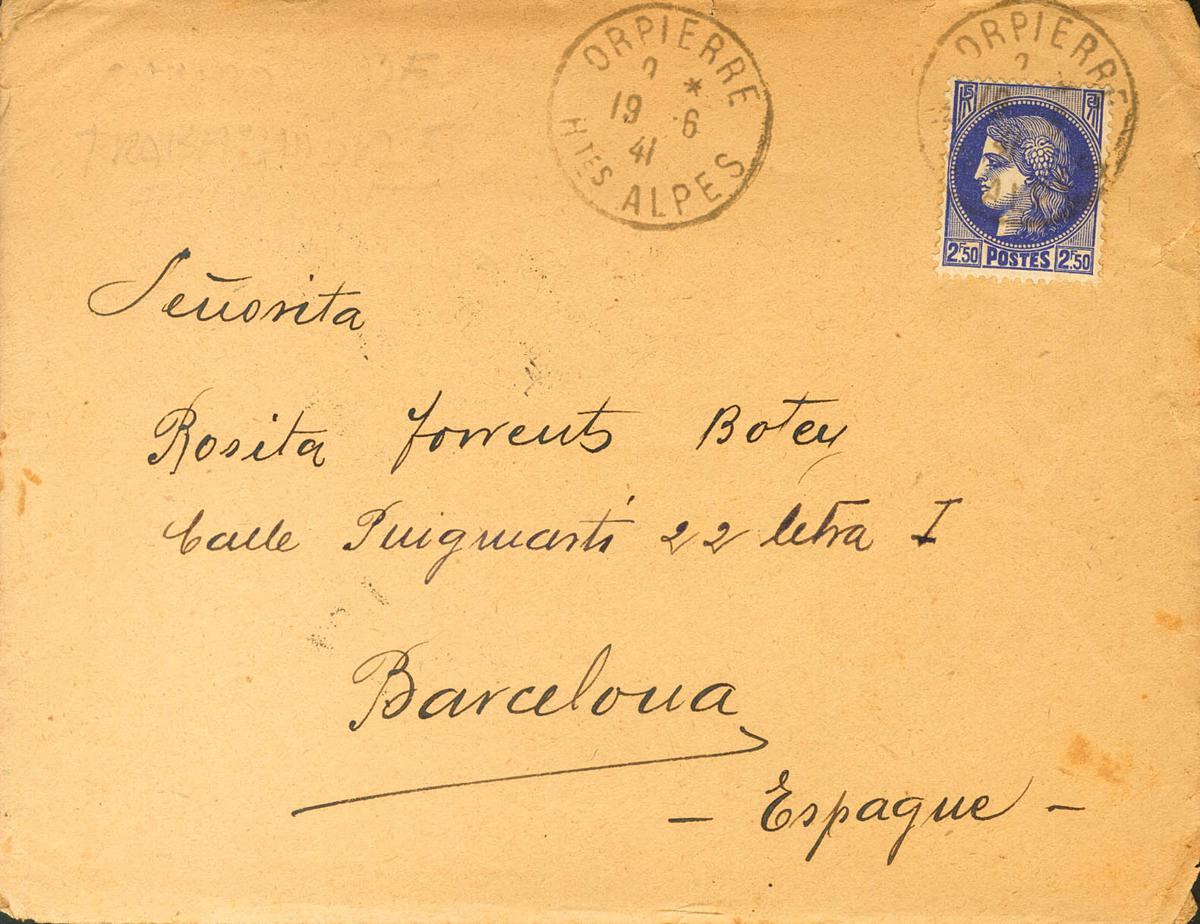 ORPIERRE
19 * 6
41
Htes ALPES
ORPIERRE
RF
2F.50 POSTES 2F.50
Señorita
Rosita Torrents Botey
Calle Puigmartí 22 letra I
Barcelona
- Espagne -